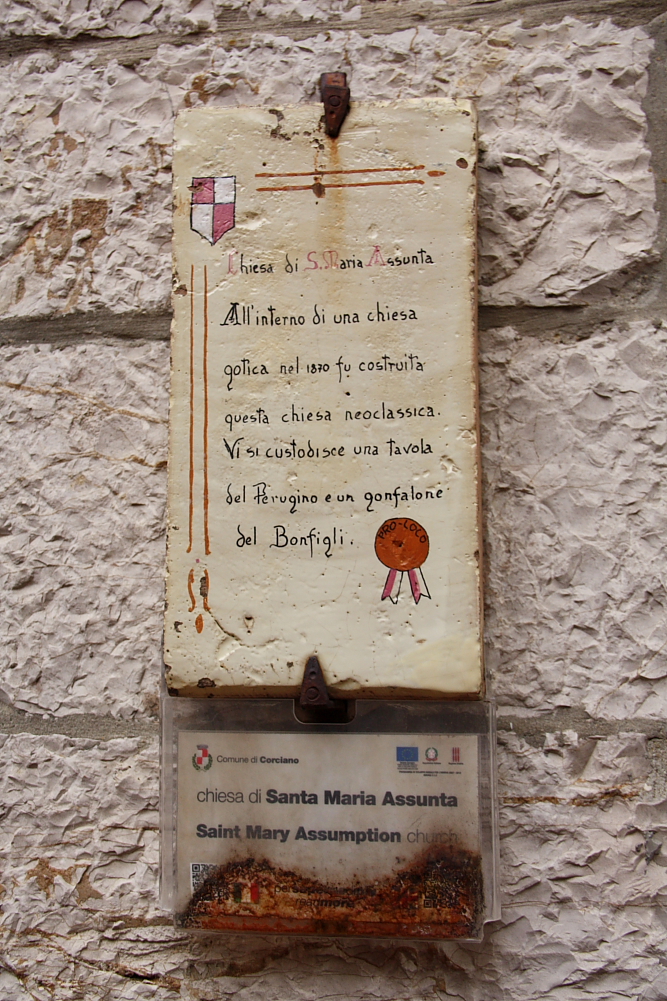 Chiesa di S. Maria Assunta
All'interno di una chiesa
gotica nel 1870 fu costruita
questa chiesa neoclassica.
Vi si custodisce una tavola
del Perugino e un gonfalone
del Bonfigli.
PRO-LOCO
Comune di Corciano
chiesa di Santa Maria Assunta
Saint Mary Assumption church